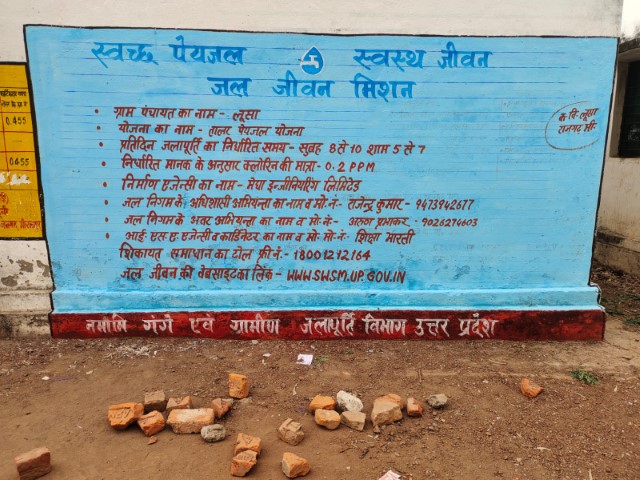 स्वच्छ पेयजल स्वस्थ जीवन
जल जीवन मिशन
ग्राम पंचायत का नाम - लूसा
योजना का नाम - तालर पेयजल योजना
प्रतिदिन जलापूर्ति का निर्धारित समय - सुबह 8 से 10 शाम 5 से 7
निर्धारित मानक के अनुसार क्लोरिन की मात्रा - 0.2 PPM
निर्माण एजेन्सी का नाम - मेघा इन्जीनियरिंग लिमिटेड
जल निगम के अधिशासी अभियन्ता का नाम व मो॰ नं॰- राजेन्द्र कुमार - 9473942677
जल निगम के अवर अभियन्ता का नाम व मो॰ नं॰- अरुण प्रभाकर - 9026274603
आई॰ एस॰ ए॰ एजेन्सी व कार्डिनेटर का नाम व मो॰ नं॰- शिक्षा भारती
शिकायत समाधान का टोल फ्री नं॰- 18001212164
जल जीवन की वेबसाइट का लिंक - WWW.SWSM.UP.GOV.IN
नमामि गंगे एवं ग्रामीण जलापूर्ति विभाग उत्तर प्रदेश
0.455
0.455